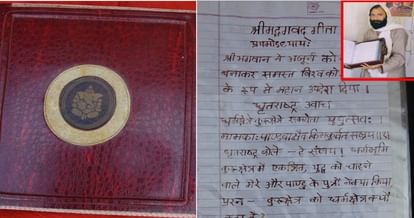 श्रीमद्भगवद् गीता
प्रथमोऽध्यायः
श्रीभगवान ने अर्जुन को
बनाकर समस्त विश्व को
के रूप में महान उपदेश दिया।
धृतराष्ट्र उवाच
धर्मक्षेत्रे कुरुक्षेत्रे समवेता युयुत्सवः।
मामकाः पाण्डवाश्चैव किमकुर्वत सञ्जय।।
धृतराष्ट्र बोले - हे संजय। धर्मभूमि
कुरुक्षेत्र में एकत्रित, युद्ध को चाहने
वाले मेरे और पाण्डु के पुत्रों ने क्या किया
प्रश्न - कुरुक्षेत्र को धर्मक्षेत्र क्यों